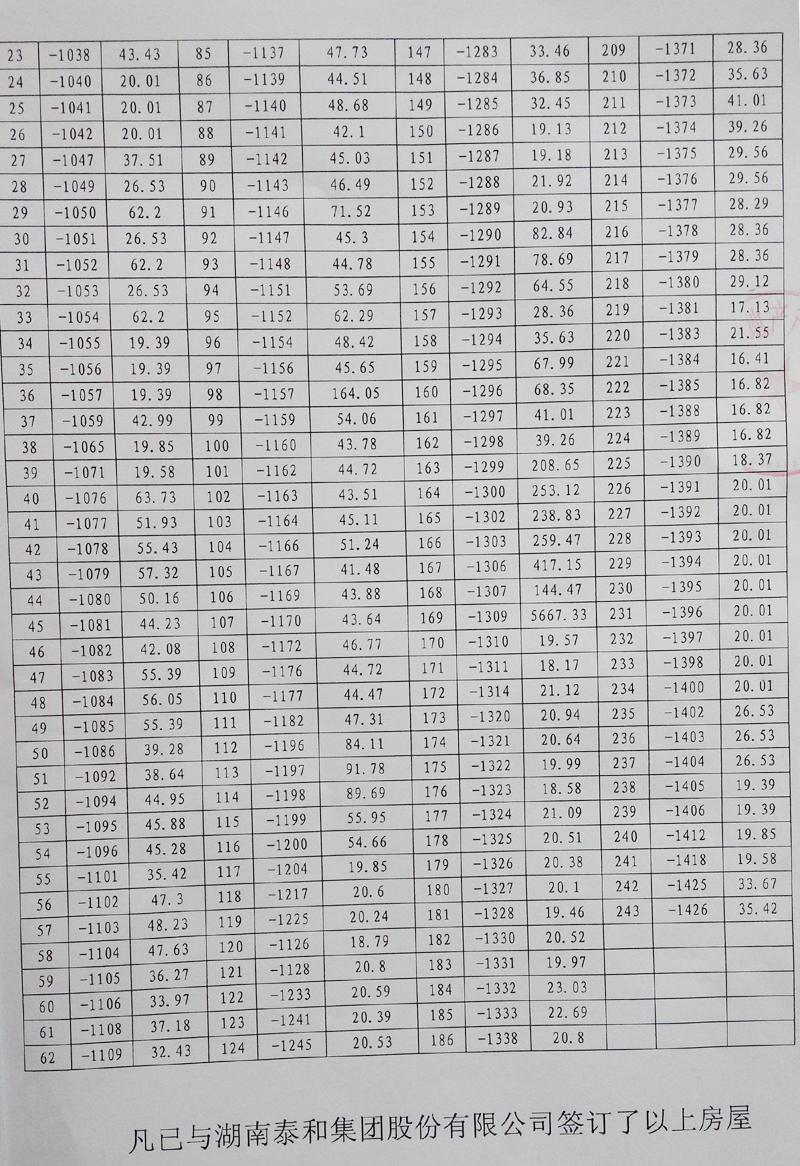 23 -1038 43.43 85 -1137 47.73 147 -1283 33.46 209 -1371 28.36
24 -1040 20.01 86 -1139 44.51 148 -1284 36.85 210 -1372 35.63
25 -1041 20.01 87 -1140 48.68 149 -1285 32.45 211 -1373 41.01
26 -1042 20.01 88 -1141 42.1 150 -1286 19.13 212 -1374 39.26
27 -1047 37.51 89 -1142 45.03 151 -1287 19.18 213 -1375 29.56
28 -1049 26.53 90 -1143 46.49 152 -1288 21.92 214 -1376 29.56
29 -1050 62.2 91 -1146 71.52 153 -1289 20.93 215 -1377 28.29
30 -1051 26.53 92 -1147 45.3 154 -1290 82.84 216 -1378 28.36
31 -1052 62.2 93 -1148 44.78 155 -1291 78.69 217 -1379 28.36
32 -1053 26.53 94 -1151 53.69 156 -1292 64.55 218 -1380 29.12
33 -1054 62.2 95 -1152 62.29 157 -1293 28.36 219 -1381 17.13
34 -1055 19.39 96 -1154 48.42 158 -1294 35.63 220 -1383 21.55
35 -1056 19.39 97 -1156 45.65 159 -1295 67.99 221 -1384 16.41
36 -1057 19.39 98 -1157 164.05 160 -1296 68.35 222 -1385 16.82
37 -1059 42.99 99 -1159 54.06 161 -1297 41.01 223 -1388 16.82
38 -1065 19.85 100 -1160 43.78 162 -1298 39.26 224 -1389 16.82
39 -1071 19.58 101 -1162 44.72 163 -1299 208.65 225 -1390 18.37
40 -1076 63.73 102 -1163 43.51 164 -1300 253.12 226 -1391 20.01
41 -1077 51.93 103 -1164 45.11 165 -1302 238.83 227 -1392 20.01
42 -1078 55.43 104 -1166 51.24 166 -1303 259.47 228 -1393 20.01
43 -1079 57.32 105 -1167 41.48 167 -1306 417.15 229 -1394 20.01
44 -1080 50.16 106 -1169 43.88 168 -1307 144.47 230 -1395 20.01
45 -1081 44.23 107 -1170 43.64 169 -1309 5667.33 231 -1396 20.01
46 -1082 42.08 108 -1172 46.77 170 -1310 19.57 232 -1397 20.01
47 -1083 55.39 109 -1176 44.72 171 -1311 18.17 233 -1398 20.01
48 -1084 56.05 110 -1177 44.47 172 -1314 21.12 234 -1400 20.01
49 -1085 55.39 111 -1182 47.31 173 -1320 20.94 235 -1402 26.53
50 -1086 39.28 112 -1196 84.11 174 -1321 20.64 236 -1403 26.53
51 -1092 38.64 113 -1197 91.78 175 -1322 19.99 237 -1404 26.53
52 -1094 44.95 114 -1198 89.69 176 -1323 18.58 238 -1405 19.39
53 -1095 45.88 115 -1199 55.95 177 -1324 21.09 239 -1406 19.39
54 -1096 45.28 116 -1200 54.66 178 -1325 20.51 240 -1412 19.85
55 -1101 35.42 117 -1204 19.85 179 -1326 20.38 241 -1418 19.58
56 -1102 47.3 118 -1217 20.6 180 -1327 20.1 242 -1425 33.67
57 -1103 48.23 119 -1225 20.24 181 -1328 19.46 243 -1426 35.42
58 -1104 47.63 120 -1126 18.79 182 -1330 20.52
59 -1105 36.27 121 -1128 20.8 183 -1331 19.97
60 -1106 33.97 122 -1233 20.59 184 -1332 23.03
61 -1108 37.18 123 -1241 20.39 185 -1333 22.69
62 -1109 32.43 124 -1245 20.53 186 -1338 20.8
凡已与湖南泰和集团股份有限公司签订了以上房屋